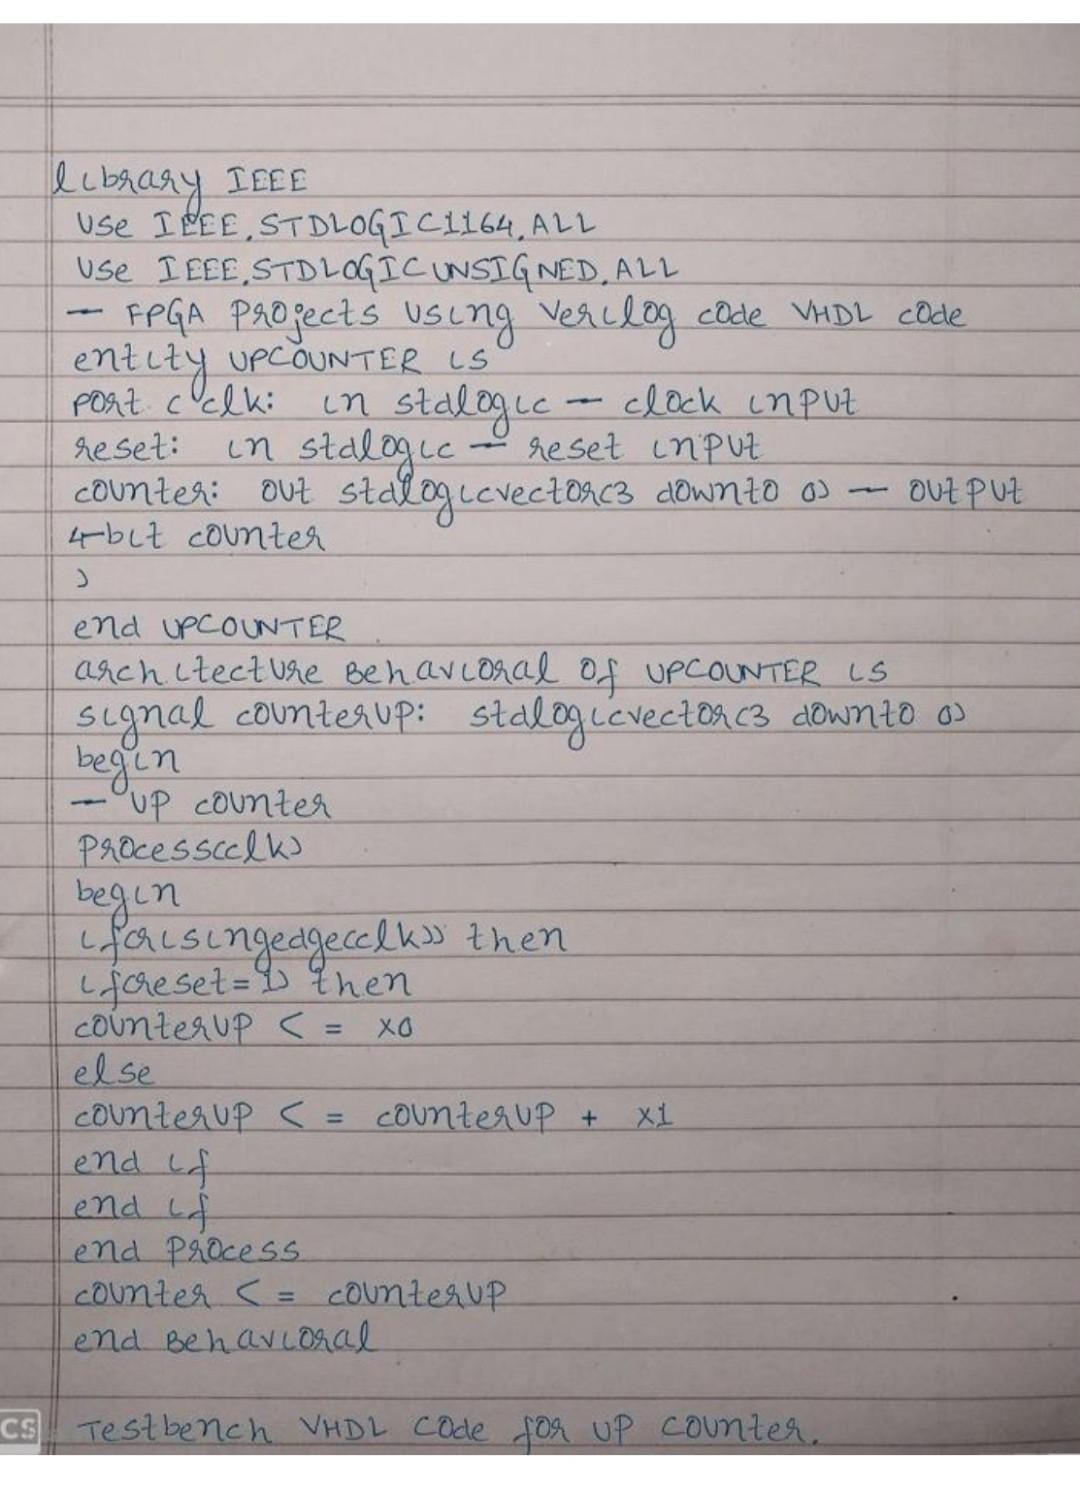 library IEEE
Use IEEE.STDLOGIC1164.ALL
Use IEEE.STDLOGICUNSIGNED.ALL
— FPGA Projects using Verilog code VHDL code
entity UPCOUNTER is
port ( clk: in stdlogic — clock input
reset: in stdlogic — reset input
counter: out stdlogicvector(3 downto 0) — output
4-bit counter
)
end UPCOUNTER
architecture Behavioral of UPCOUNTER is
signal counterup: stdlogicvector(3 downto 0)
begin
— up counter
process(clk)
begin
if(risingedge(clk)) then
if(reset=1) then
counterup < = x0
else
counterup < = counterup + x1
end if
end if
end process
counter < = counterup
end Behavioral
Testbench VHDL code for up counter.
CS